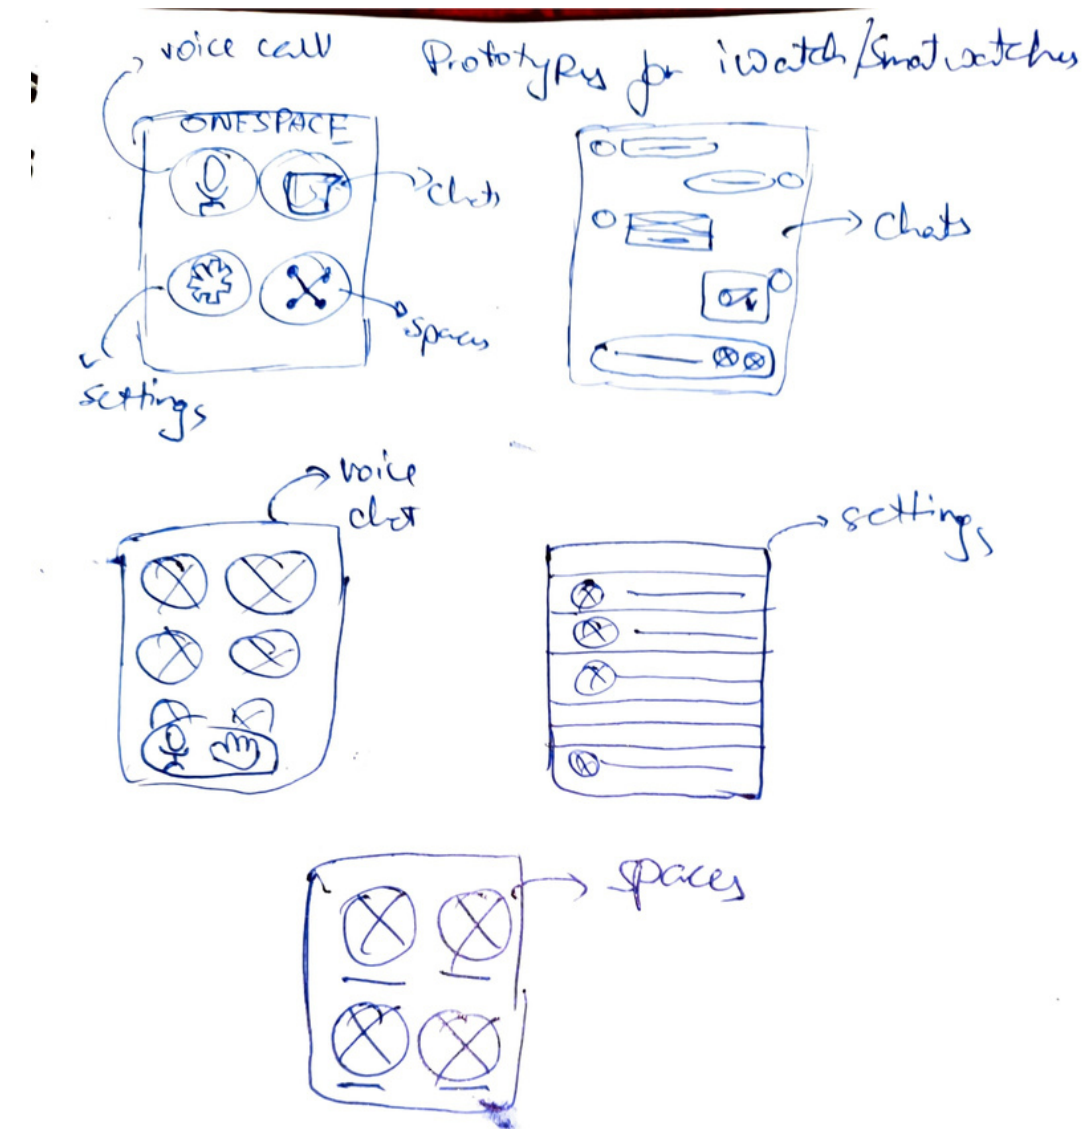 voice call
Prototypes for iWatch/Smatwatches
ONESPACE
chats
chats
spaces
settings
voice
chat
settings
spaces